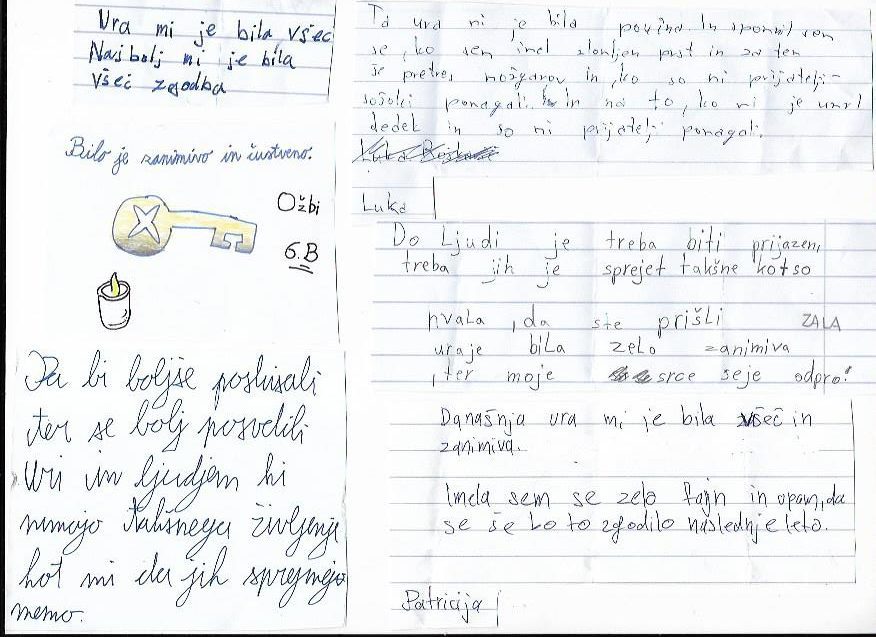 Ura mi je bila všeč
Najbolj mi je bila
všeč zgodba
Bilo je zanimivo in čustveno.
Ožbi
6.B
Da bi boljše poslušali
ter se bolj posvetili
uri in ljudjem ki
nimajo takšnega življenja
kot mi da jih sprejmejo
memo.
Ta ura mi je bila
In spomnil sem
se, ko sem imel zlomljen prst in za ten
še pretres možganov in, ko so mi prijatelji-
sošolci ponagali. In na to, ko mi je umrl
dedek in so mi prijatelji ponagali.
Luka
Luka
Do Ljudi je treba biti prijazen,
treba jih je sprejet takšne kot so
hvala, da ste prišli ZALA
ura je bila zelo zanimiva
, ter moje srce se je odpro!
Današnja ura mi je bila všeč in
zanimiva.
Imela sem se zelo fajn in upam, da
se še bo to zgodilo naslednje leto.
Patricija